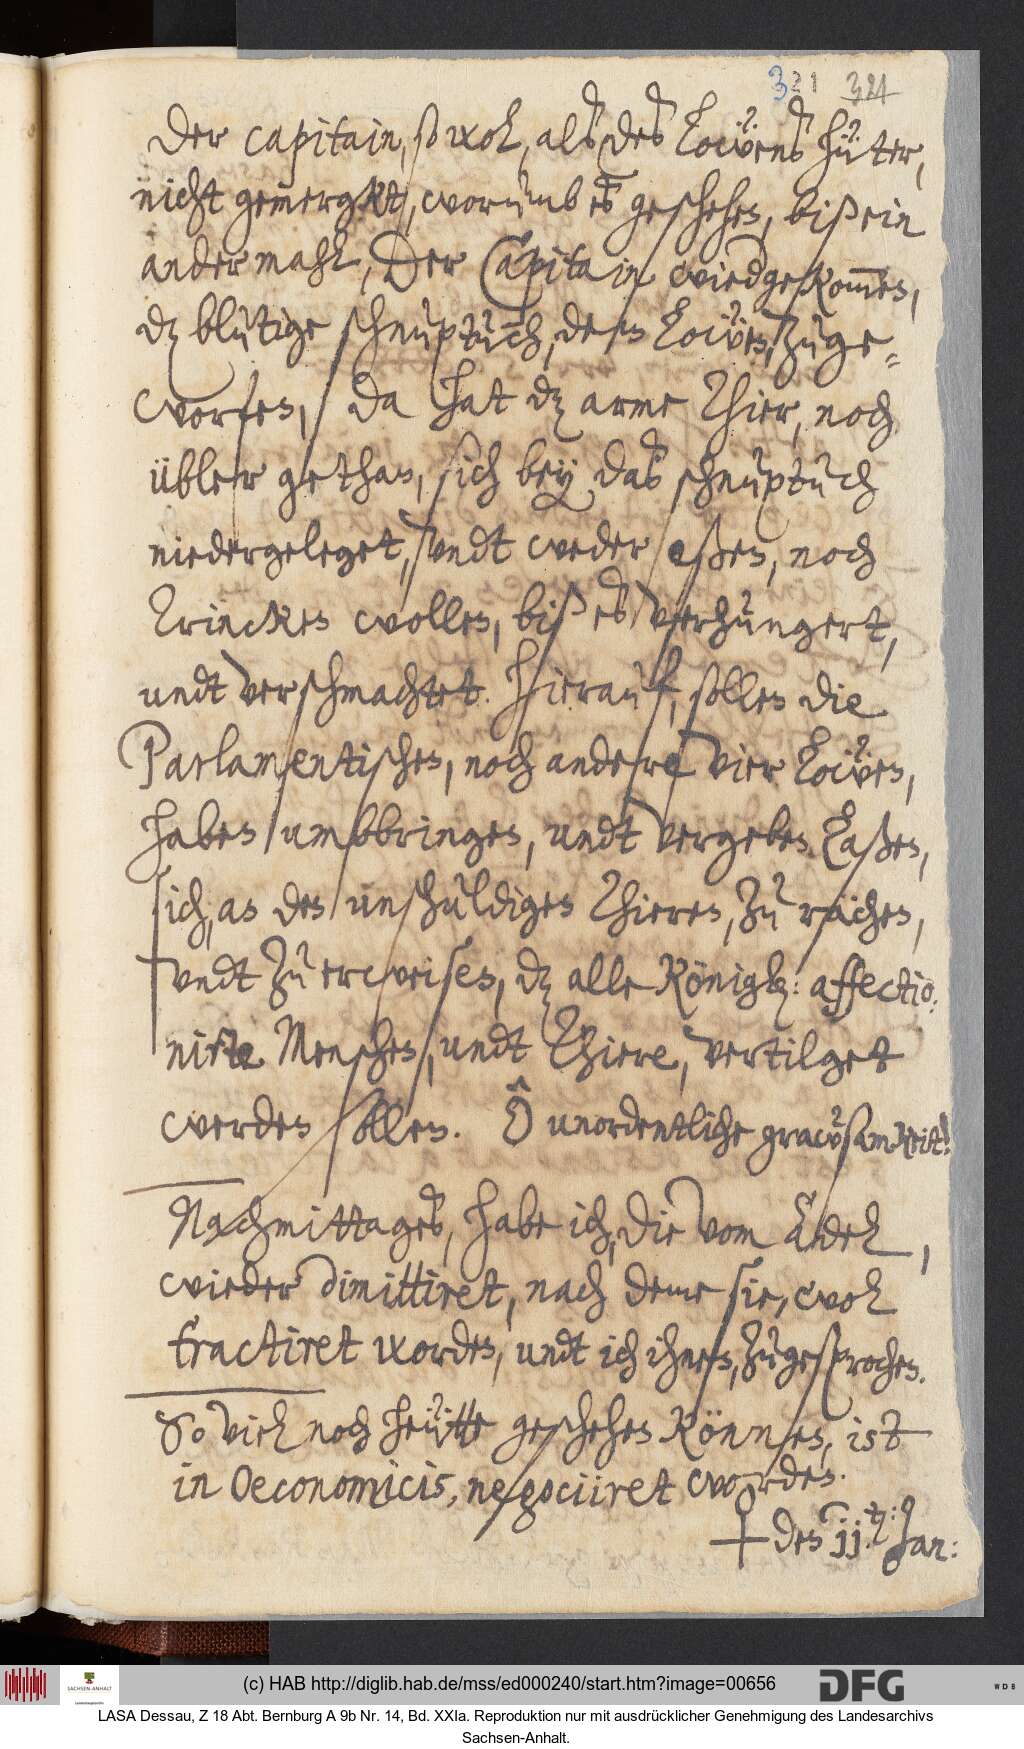 321 321
Der capitain, so wol, als des Löwens hüter,
nicht gemergkt, worumb es geschehen, biß ein
andermahl, Der Capitain wiedgekom̅en,
dz blutige schnuptuch, dem Löwen, zuge=
worfen, da hat dz arme Thier, noch
übler gethan, sich bey das schnuptuch
niedergeleget, undt weder eßen, noch
trincken wollen, biß es verhungert,
undt verschmachtet. Hierauf, sollen die
Parlamentischen, noch andere vier Löwen,
haben umbbringen, undt vergeben laßen,
sich, an den unschuldigen Thieren, zu rächen,
undt zu erweisen, dz alle Königl: affectio:
nirte Menschen, undt Thiere, vertilget
werden sollen. Ô unordentliche grawsamkeit!
Nachmittages, habe ich, die vom Adel,
wieder dimittiret, nach deme sie, wol
tractiret worden, undt ich ihnen, zugesprochen.
So viel noch heütte geschehen können, ist
in Oeconomicis, negociiret worden.
♀ den 11. Jan:
(c) HAB http://diglib.hab.de/mss/ed000240/start.htm?image=00656
SACHSEN-ANHALT
DFG
WDB
LASA Dessau, Z 18 Abt. Bernburg A 9b Nr. 14, Bd. XXIa. Reproduktion nur mit ausdrücklicher Genehmigung des Landesarchivs
Sachsen-Anhalt.